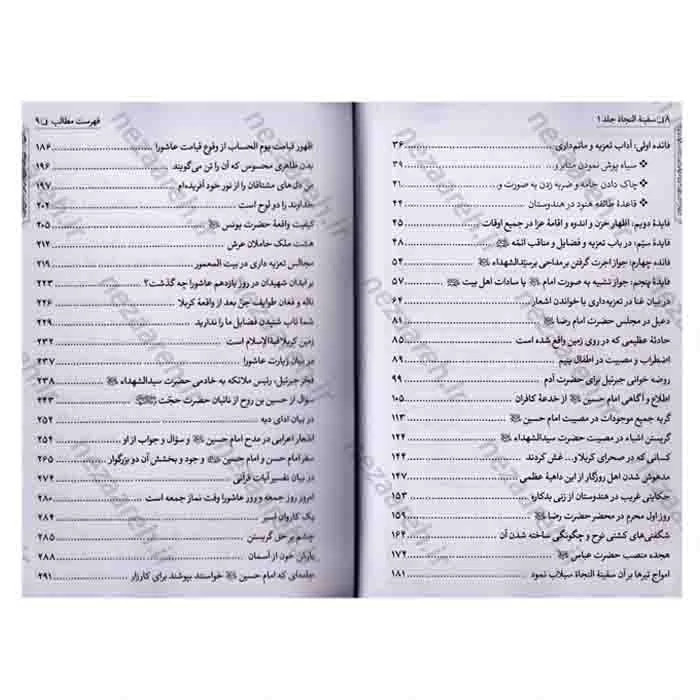 ۸ سفینة النجاة جلد ۱
فائده اولی: آداب تعزیه و ماتم‌داری ۳۶
❖ سیاه پوش نمودن منابر و... ۳۹
❖ چاک دادن جامه و ضربه زدن به صورت و... ۴۱
❖ قاعدهٔ طائفه هنود در هندوستان ۴۴
فایدهٔ دویم: اظهار حزن و اندوه و اقامهٔ عزا در جمیع اوقات ۴۵
فایدهٔ سیّم: در باب تعزیه و فضایل و مناقب ائمّه ۴۸
فائده چهارم: جواز اجرت گرفتن بر مداحی بر سیّدالشهداء ۵۴
فایدهٔ پنجم: جواز تشبیه به صورت امام یا سادات اهل بیت ۵۷
در بیان غنا در تعزیه‌داری یا خواندن اشعار ۶۴
دعبل در مجلس حضرت امام رضا ۸۱
حادثهٔ عظیمی که در روی زمین واقع شده است ۸۵
اضطراب و مصیبت در اطفال یتیم ۸۹
روضه خوانی جبرئیل برای حضرت آدم ۹۹
اطلاع و آگاهی امام حسین از خدعهٔ کافران ۱۰۵
گریه جمیع موجودات در مصیبت امام حسین ۱۱۳
گریستن اشیاء در مصیبت حضرت سیدالشهداء ۱۲۴
کسانی که در صحرای کربلا و... غش کردند ۱۴۴
مدهوش شدن اهل روزگار از این داهیهٔ عظمی ۱۴۷
حکایتی غریب در هندوستان از زنی بدکاره ۱۵۳
روز اول محرم در محضر حضرت رضا ۱۵۹
شگفتی‌های کشتی نوح و چگونگی ساخته شدن آن ۱۶۴
هجده منصب حضرت عباس ۱۷۲
امواج تیرها بر آن سفینة النجاة سیلاب نمود ۱۸۱
فهرست مطالب ۹
ظهور قیامت یوم الحساب از وقوع قیامت عاشورا ۱۸۶
بدن ظاهری محسوس که آن را تن می‌گویند ۱۹۶
من دل‌های مشتاقان را از نور خود آفریده‌ام ۱۹۷
خداوند را دو لوح است ۲۰۲
کیفیت واقعهٔ حضرت یونس ۲۰۵
هشت ملک حاملان عرش ۲۱۲
مجالس تعزیه داری در بیت المعمور ۲۱۹
بر ابدان شهیدان در روز یازدهم عاشورا چه گذشت؟ ۲۲۳
ناله و فغان طوایف جنّ بعد از واقعهٔ کربلا ۲۲۶
شما تاب شنیدن فضایل ما را ندارید ۲۲۹
زمین کربلا قبةالإسلام است ۲۳۲
در بیان زیارت عاشورا ۲۳۷
فخر جبرئیل، رئیس ملائکه به خادمی حضرت سیدالشهداء ۲۳۸
سؤال از حسین بن روح از نائبان حضرت حجّت ۲۴۳
در بیان ادای دیه ۲۵۲
اشعار اعرابی در مدح امام حسین و سؤال و جواب از او ۲۵۴
سفر امام حسن و امام حسین و جود و بخشش آن دو بزرگوار ۲۶۵
در بیان تفسیر آیات قرآنی ۲۷۴
امروز روز جمعه و روز عاشورا وقت نماز جمعه است ۲۸۰
یک کاروان اسیر ۲۸۴
چشم بر حق گریستن ۲۸۵
بارش خون از آسمان ۲۸۸
جامه‌ای که امام حسین خواستند بپوشند برای کارزار ۲۹۱
nezaareh.ir